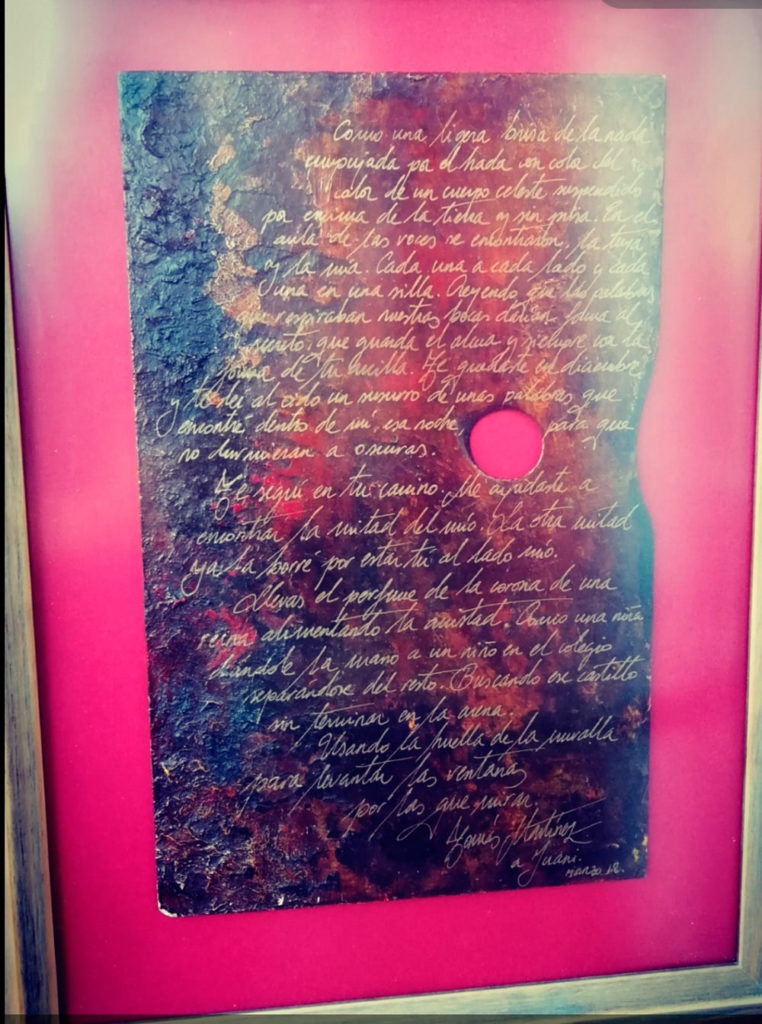 Como una ligera brisa de la nada
empujada por el hada con color del
calor de un cuerpo celeste suspendido
por encima de la tierra y sin prisa. En el
aula de las voces se encontraron, la tuya
y la mía. Cada una a cada lado y cada
una en una silla. Creyendo que las palabras
que respiraban nuestras bocas darían forma al
secreto, que guarda el alma y siempre va la
de tu Te quedaste en diciembre
y te dei al oido un susurro de unas palabras que
encontré dentro de mi, esa noche para que
no durmieran a oscuras.
Te seguí en tu camino. Me ayudaste a
encontrar la mitad del mío. La otra mitad
ya la borré por estar tu al lado mio.
Llevas el perfume de la corona de una
reina alimentando la amistad. Como una niña
dándole la mano a un niño en el colegio
separandose del resto. Buscando ese castillo
sin terminar en la arena.
Usando la huella de la muralla
para levantar las ventanas
por las que mirar.
Tomás Martínez
a Juani.
MARZO 18.